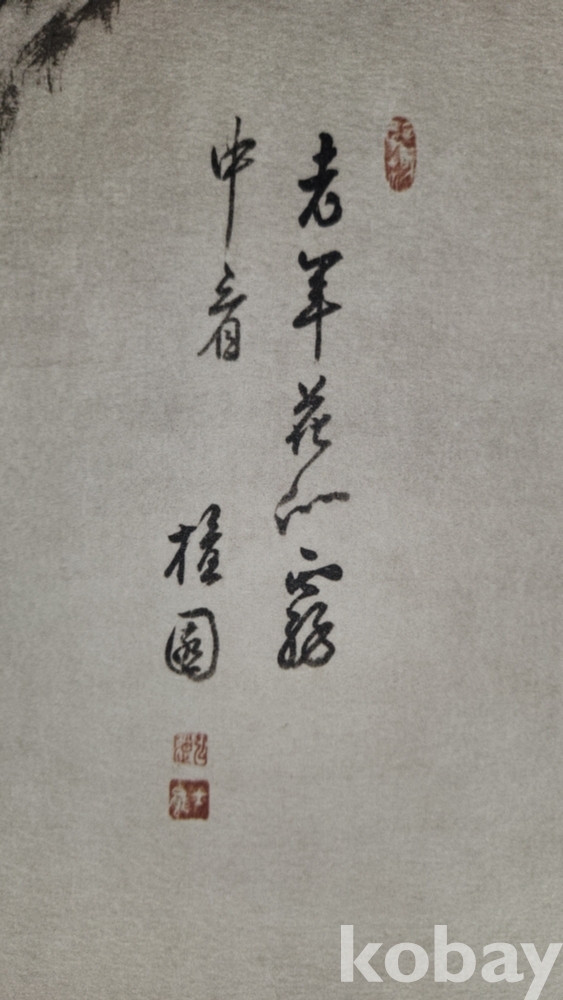 老年花似霧
中看
檀園
kobay